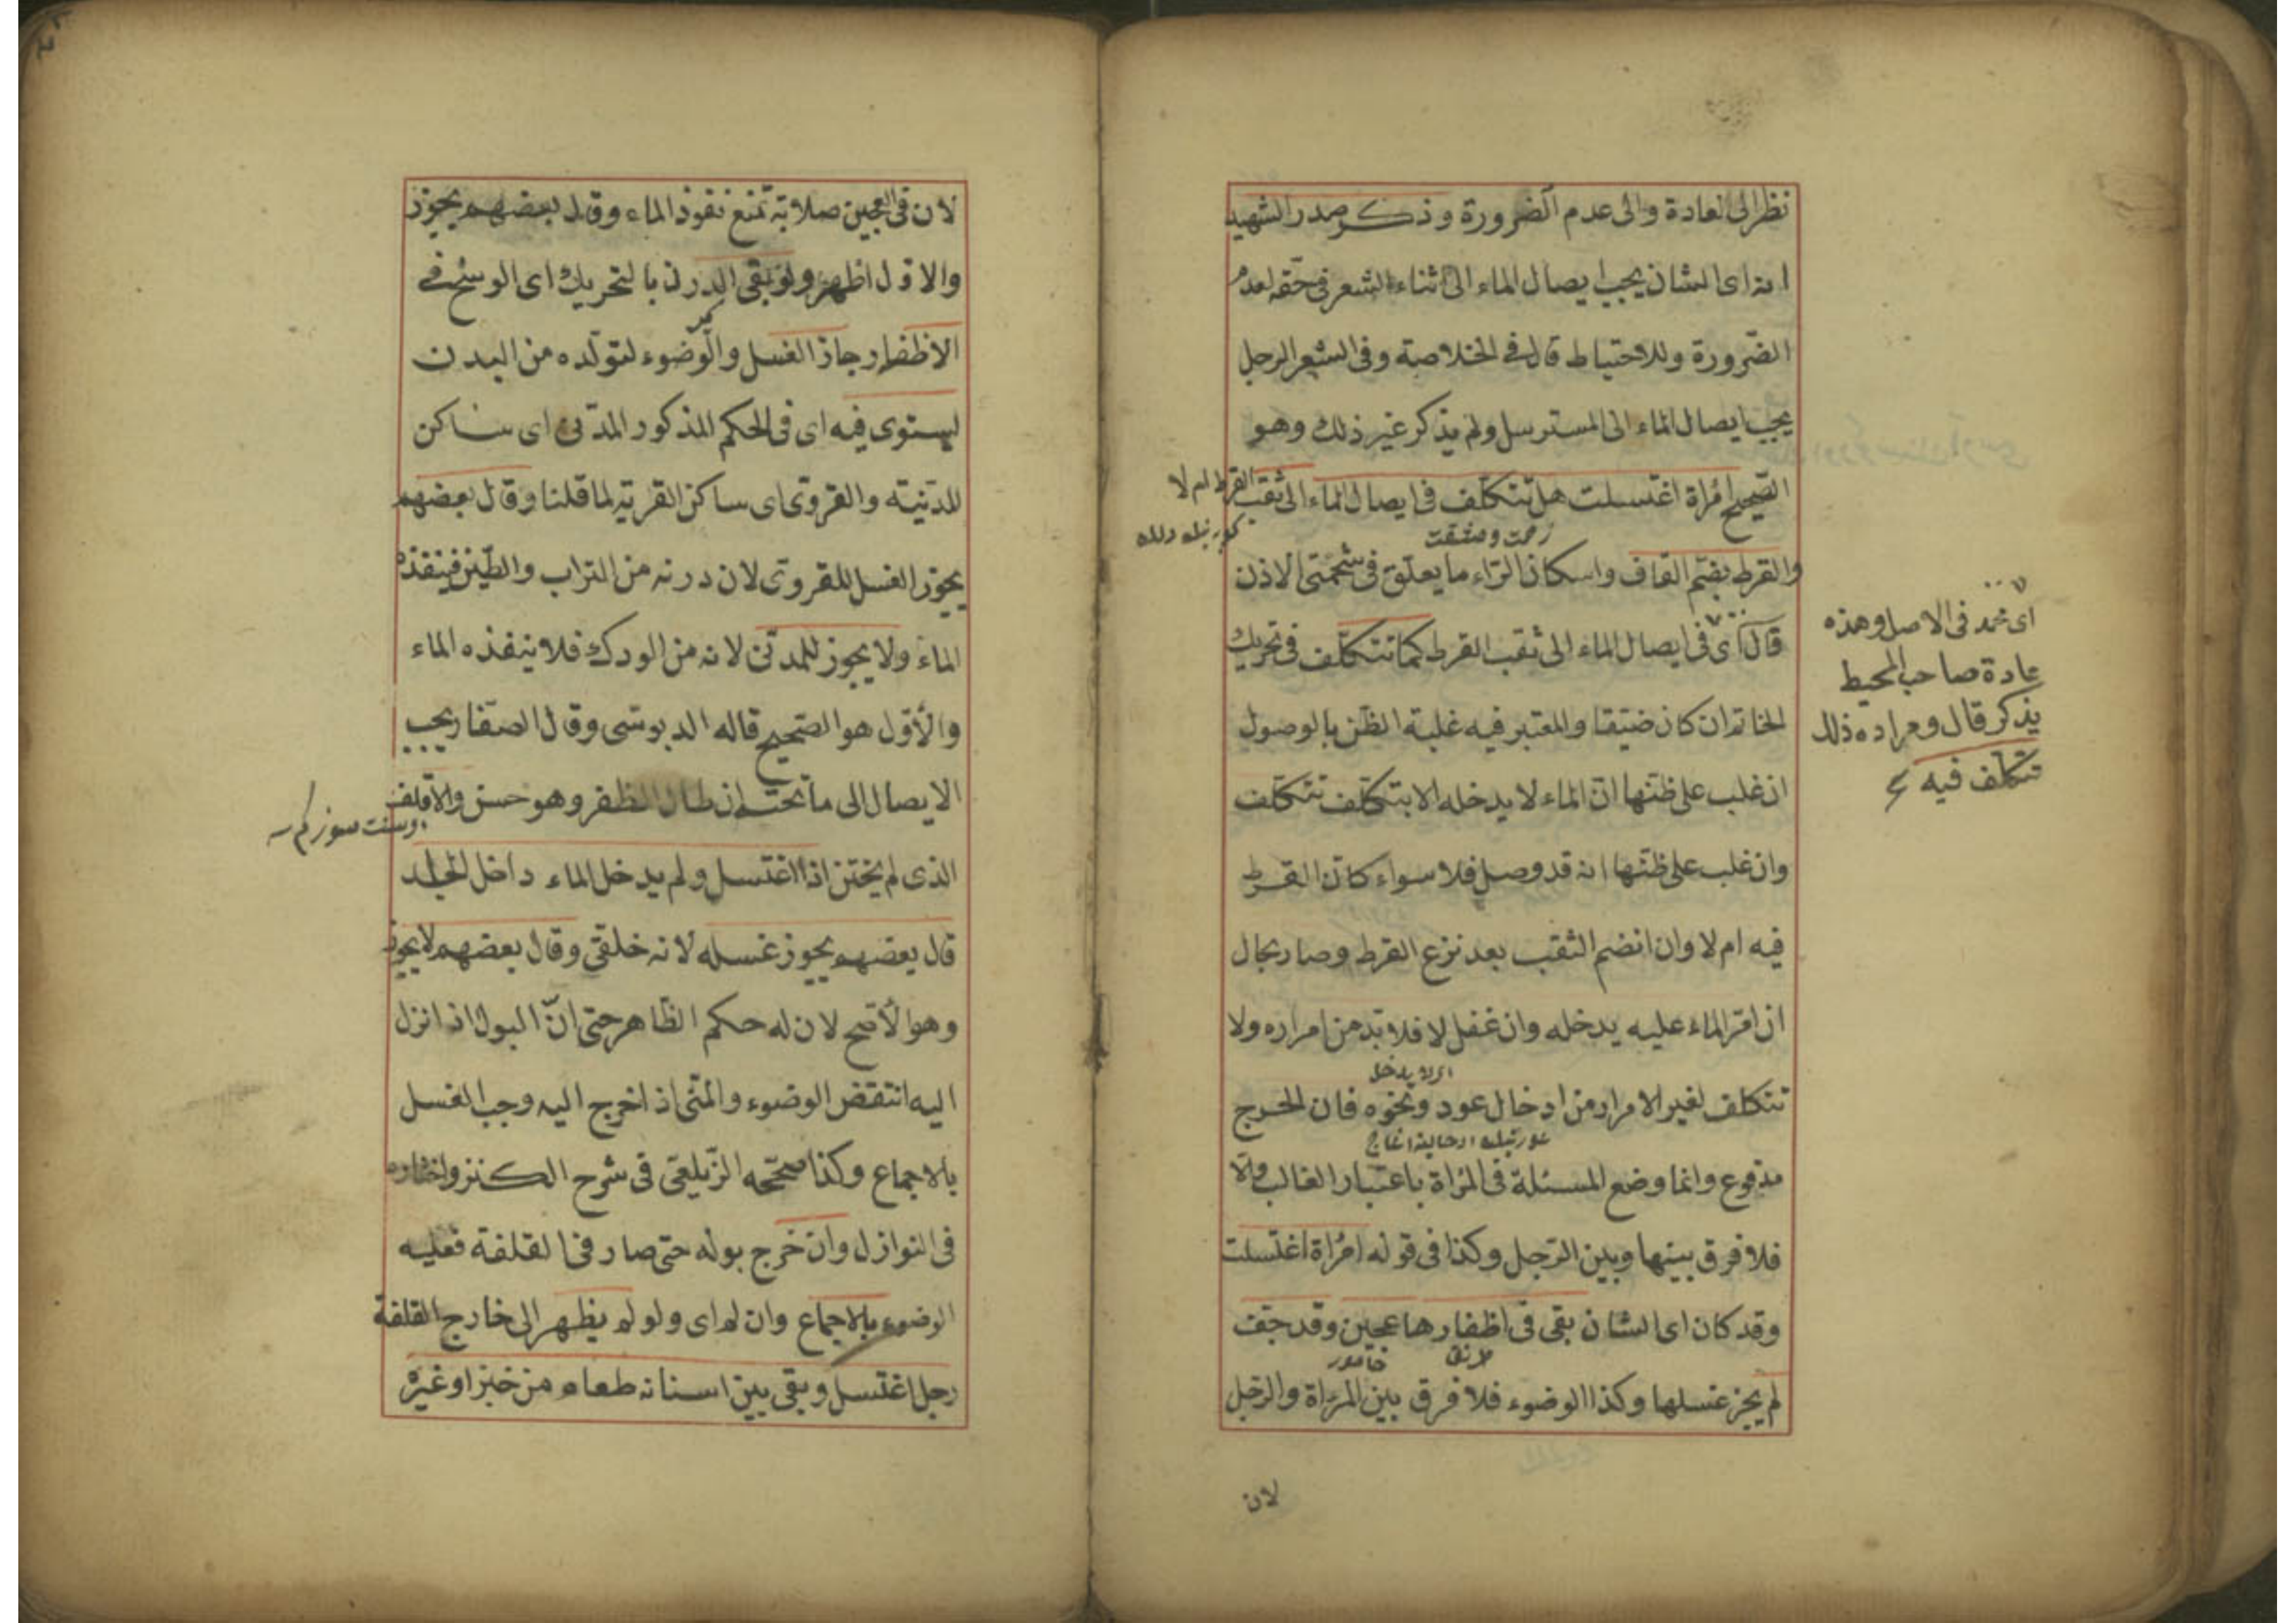 نظرا الى العادة والى عدم الضرورة وذكر صدر الشهيد
انه اى الشان يجب ايصال الماء الى اثناء الشعر فى حقه لعدم
الضرورة وللاحتياط قال فى الخلاصة وفى الشعر الرجل
يجب ايصال الماء الى المسترسل ولم يذكر غير ذلك وهو
الصحيح امرأة اغتسلت هل تتكلف فى ايصال الماء الى ثقب القرط ام لا
زحمت ومشقت
والقرط بضم القاف واسكان الراء ما يعلق فى شحمتى الاذن
قال اى فى ايصال الماء الى ثقب القرط كما تتكلف فى تحريك
الخاتم ان كان ضيقا والمعتبر فيه غلبة الظن بالوصول
ان غلب على ظنها ان الماء لا يدخله الا بتكلف تتكلف
وان غلب على ظنها انه قد وصل فلا سواء كان القرط
فيه ام لا وان انضم الثقب بعد نزع القرط وصار بحال
ان امر الماء عليه يدخله وان غفل لا فلا بد من امراره ولا
اى لا يدخل
تتكلف لغير الامرار من ادخال عود ونحوه فان الحرج
مدفوع وانما وضع المسئلة فى المرأة باعتبار الغالب والا
فلا فرق بينها وبين الرجل وكذا فى قوله امرأة اغتسلت
وقد كان اى الشان بقى فى اظفارها عجين وقد جف
طرنق خامور
لم يجز غسلها وكذا الوضوء فلا فرق بين المرأة والرجل
لان
اى محمد فى الاصل وهذه
عادة صاحب المحيط
يذكر قال ومراده ذلك
تتكلف فيه
لان فى العجين صلابة تمنع نفوذ الماء وقال بعضهم يجوز
والاول اظهر ولو بقى الدرن بالتحريك اى الوسخ فى
كير
الاظفار جاز الغسل والوضوء لتولده من البدن
يستوى فيه اى فى الحكم المذكور المدنى اى ساكن
المدنية والقروى اى ساكن القرية لما قلنا وقال بعضهم
يجوز الغسل للقروى لان درنه من التراب والطين فينفذه
الماء ولا يجوز للمدنى لانه من الودك فلا ينفذه الماء
والأول هو الصحيح قاله الدبوسى وقال الصفار يجب
الايصال الى ما تحته ان طال الظفر وهو حسن والاقلف
الذى لم يختن اذا اغتسل ولم يدخل الماء داخل الجلد
قال بعضهم يجوز غسله لانه خلقى وقال بعضهم لا يجوز
وهو الأصح لان له حكم الظاهر حتى ان البول اذا نزل
اليه انتقض الوضوء والمنى اذا خرج اليه وجب الغسل
بالاجماع وكذا صححه الزيلعى فى شرح الكنز واختاره
فى النوازل وان خرج بوله حتى صار فى القلفة فعليه
الوضوء بالاجماع وان لم اى ولو لم يظهر الى خارج القلفة
رجل اغتسل وبقى بين اسنانه طعام من خبز او غيره